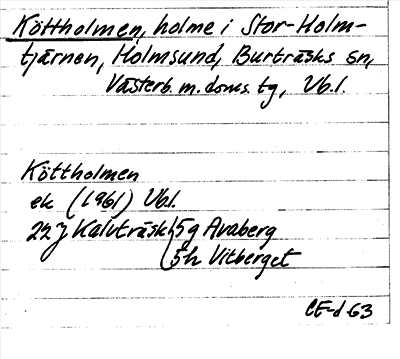 Köttholmen, holme i Stor-Holm-
tjärnen, Holmsund, Burträsks sn,
Västerb. m. doms. tg, Vb.l.
Köttholmen
ek (1961) Vb.l.
22J Kalvträsk 5g Avaberg
5h Vitberget
CE-d 63